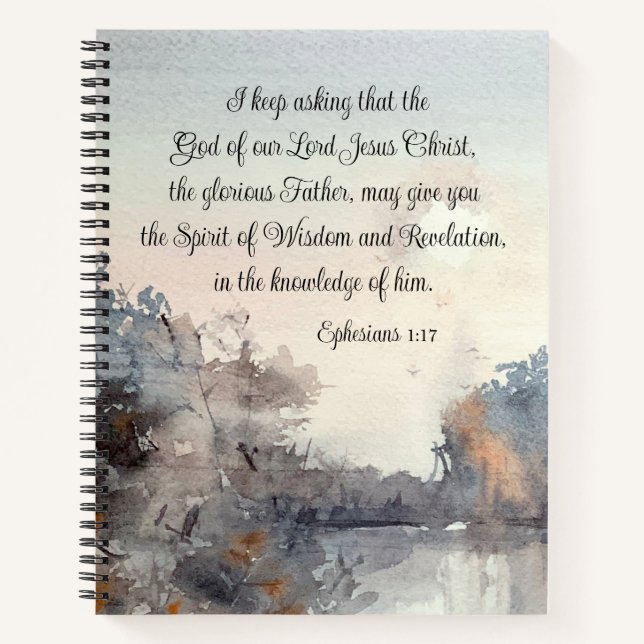 I keep asking that the
God of our Lord Jesus Christ,
the glorious Father, may give you
the Spirit of Wisdom and Revelation,
in the knowledge of him.
Ephesians 1:17